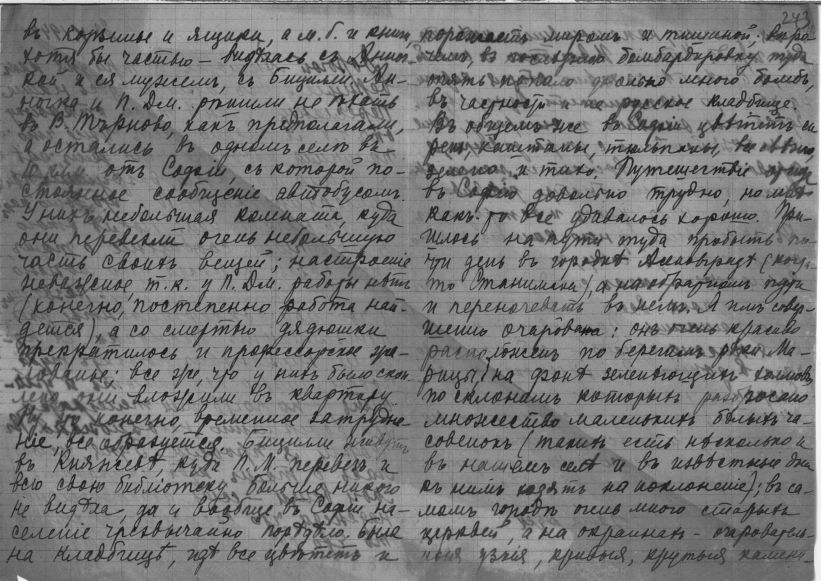 въ корзины и ящики, а м.б. и книги
хотя бы частью – видѣлась съ
и ея мужемъ, съ Бицилли. Ан-
ночка и П. Дм. рѣшили не ѣхать
въ В. Търново, какъ предполагали,
а остались въ одномъ селѣ въ
отъ Софіи, съ которой по-
стоянное сообщеніе автобусомъ.
У нихъ небольшая комната, куда
они перевезли очень небольшую
часть своихъ вещей; настроеніе
неважное, т.к. у П. Дм. работы нѣтъ
(конечно, постепенно работа най-
дется), а со смертью дядюшки
прекратилось и профессорское жа-
лованье: все же, что у нихъ было скоп-
лено они вложили въ квартиру.
конечно, временное затрудне-
ніе, все образуется. Бицилли живутъ
въ Княжевѣ, куда П. М. перевезъ и
всю свою библіотеку. Больше никого
не видѣла, да и вообще въ Софіи на-
селеніе чрезвычайно порѣдѣло. Была
на кладбищѣ, гдѣ все цвѣтетъ и
243
миромъ и тишиной; впро-
чемъ, въ послѣднюю бомбардировку туда
опять попало довольно много бомбъ,
въ частности и на русское кладбище.
Въ общемъ же въ Софіи цвѣтетъ си-
рень, каштаны, тюльпаны, все
зелено и тихо. Путешествіе
въ Софію довольно трудно, но мнѣ
какъ-то все удавалось хорошо. При-
шлось на пути туда пробыть по-
чти день въ городкѣ Асеновградѣ (когда-
то Станимака), а на обратномъ пути
и переночевать въ немъ. А имъ совер-
шенно очарована: онъ очень красиво
расположенъ по берегамъ рѣки Ма-
рицы, на фонѣ зеленѣющихъ холмовъ,
по склонамъ которыхъ разбросано
множество маленькихъ бѣлыхъ ча-
совенокъ (такихъ есть нѣсколько и
въ нашемъ селѣ и въ извѣстные дни
къ нимъ ходятъ на поклоненіе); въ са-
момъ городѣ очень много старыхъ
церквей, а на окраинахъ – очарователь-
ныя узкія, кривыя, крутыя камен-